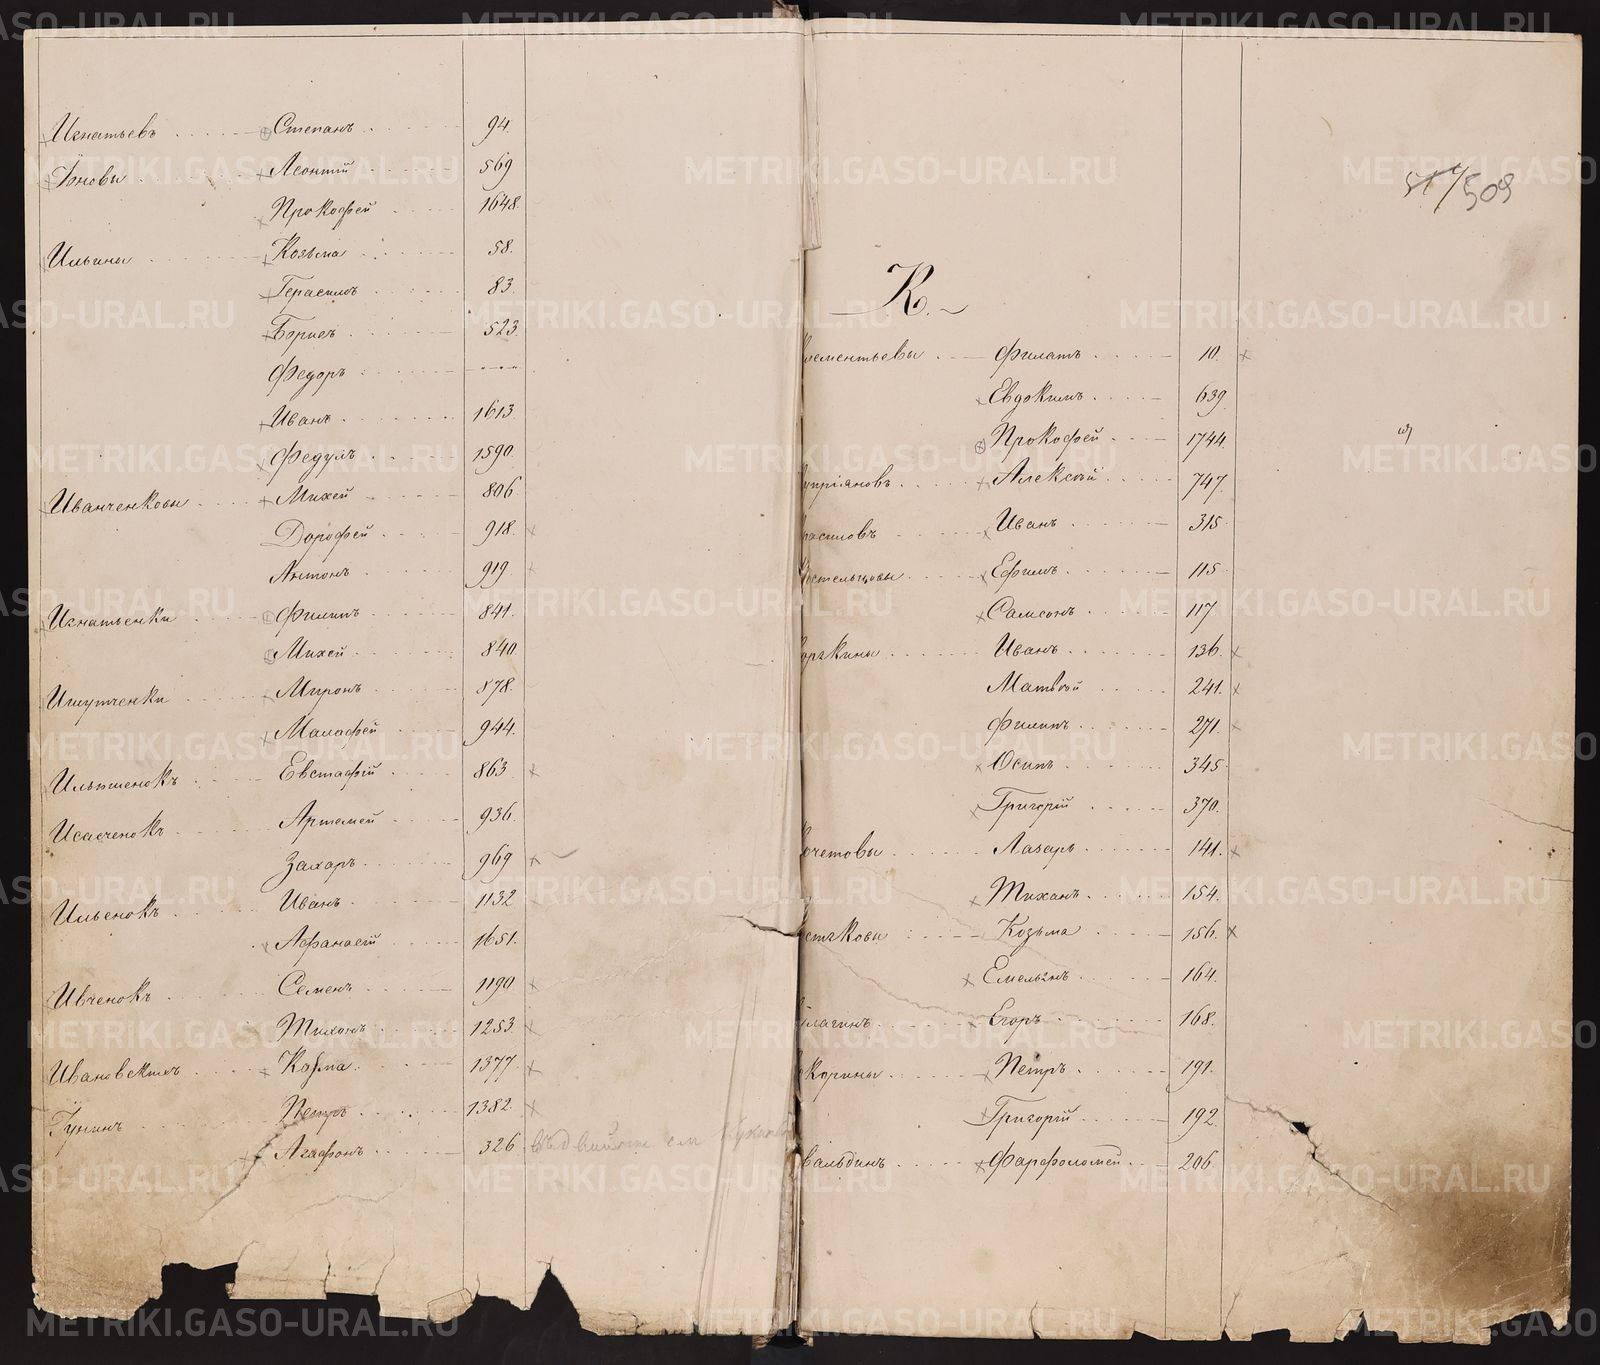 Игнатьевъ Степанъ 94.
Іоновы Леонтій 569
Прокофей 1648.
Ильины Козьма 58.
Герасимъ 83.
Борисъ 523.
Федоръ ----
Иванъ 1613.
Федулъ 1590.
Иванченковы Михей 806.
Дорофей 918. ×
Антонъ 919. ×
Игнатьенки Филипъ 841.
Михей 840
Миронъ 878.
Малофей 944.
Евстафій 863 ×
Исаченокъ Артемей 936.
Захаръ 969 ×
Ильенокъ Иванъ 1132
Афанасій 1651.
Ивченокъ Семенъ 1190 ×
Тихонъ 1253. ×
Козма 1377. ×
Петръ 1382. ×
Агафонъ 326
509
К.
лементьевы Филатъ 10. ×
Евдокимъ 639
Прокофей 1744.
упріяновъ Алексѣй 747.
Иванъ 315.
остельцовы Ефимъ 115
Самсонъ 117
Иванъ 136. ×
Матвѣй 241. ×
Филипъ 271. ×
Осипъ 345
Григорій 370.
очетовы Лазарь 141. ×
Тиханъ 154.
Козьма 156. ×
Емельянъ 164.
Егоръ 168.
окорины Петръ 191.
Григорій 192.
вальдинъ Фарфоломей 206.
METRIKI.GASO-URAL.RU